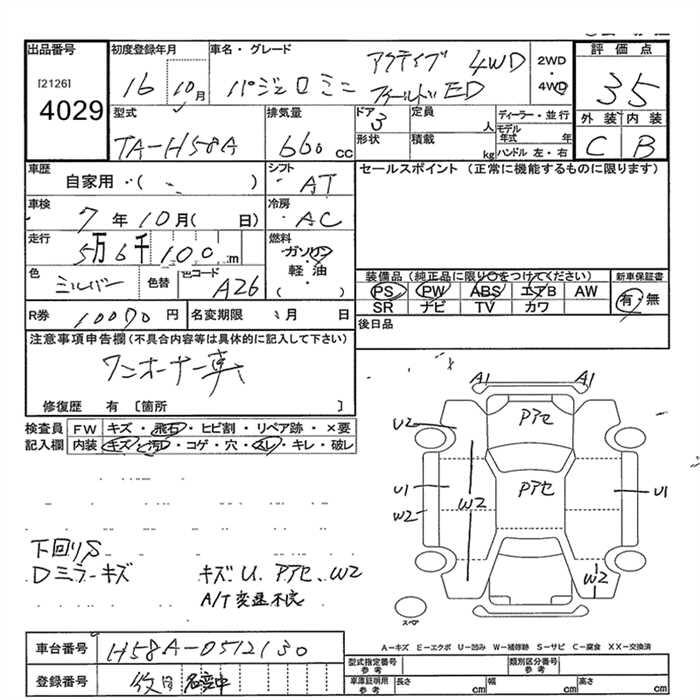 出品番号
[2126]
4029
初度登録年月
16 10月
車名・グレード
パジェロミニ アクティブ 4WD
フィールドED
2WD
・
4WD
評価点
35
外装 内装
C B
型式
TA-H58A
排気量
660 cc
ドア 3
形状
定員 人
積載 kg
ディーラー・並行
モデル年式 年
ハンドル 左・右
車歴
自家用・( )
シフト
AT
セールスポイント (正常に機能するものに限ります)
車検
7年10月( 日)
冷房
AC
走行
5万6千100 m
燃料
ガソリン
・
軽油
・
( )
色
色替
色コード
A26
装備品(純正品に限り○をつけてください)
PS PW ABS エアB AW
SR ナビ TV カワ
新車保証書
有・無
R券
円
名変期限 月 日
後日品
注意事項申告欄(不具合内容等は具体的に記入して下さい)
ワンオーナー車
修復歴 有 〔箇所 〕
検査員 FW キズ・飛石・ヒビ割・リペア跡・×要
記入欄 内装 キズ・汚レ・コゲ・穴・スレ・キレ・破レ
A1 A1
Pアセ
U2
Pアセ
U1
W2
W2
U1
W2
スペア
下回りS
Dミラーキズ
キズ、U、Pアセ、W2
A/T変速不良
A-キズ E-エクボ U-凹み W-補修跡 S-サビ C-腐食 XX-交換済
車台番号
H58A-0512130
登録番号
型式指定番号 参考
類別区分番号 参考
車庫証明用 参考
長さ cm 幅 cm 高さ cm